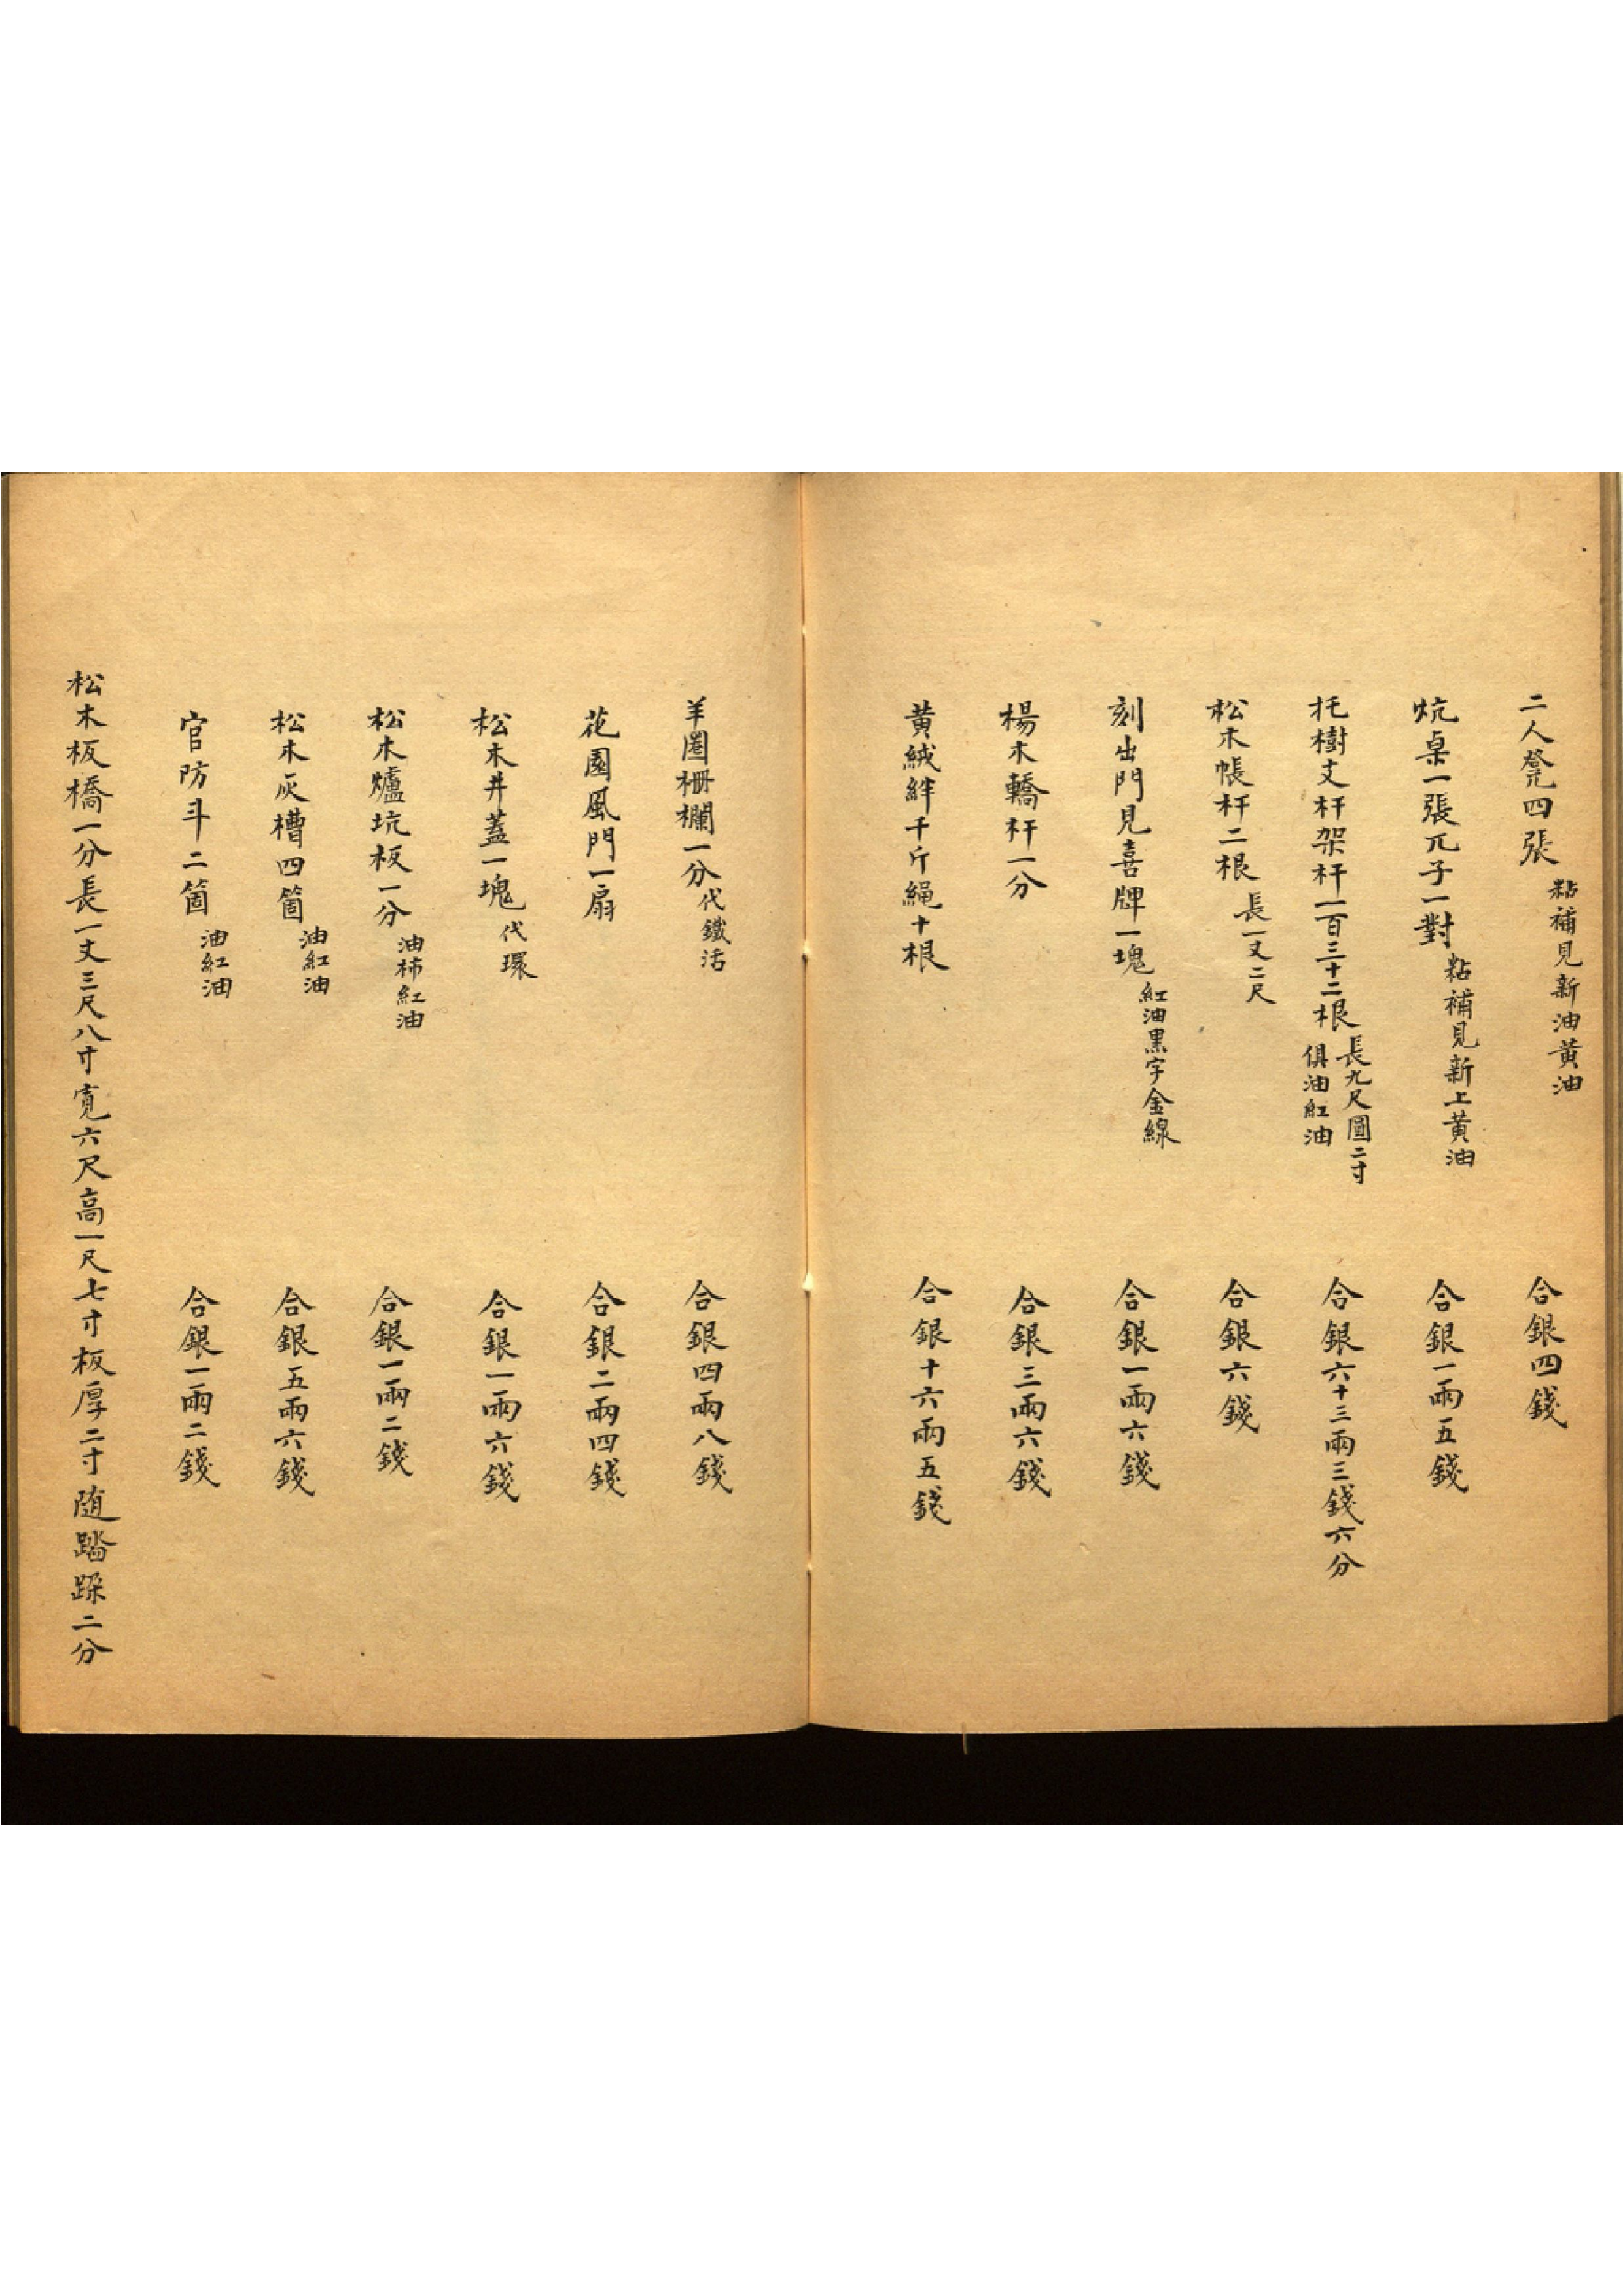 二人凳四張 粘補見新油黄油 合銀四錢
炕桌一張兀子一對 粘補見新上黄油 合銀一兩五錢
托樹支杆架杆一百三十二根 長九尺圓二寸 俱油紅油 合銀六十三兩三錢六分
松木帳杆二根 長一丈二尺 合銀六錢
刻出門見喜牌一塊 紅油黑字金線 合銀一兩六錢
楊木轎杆一分 合銀三兩六錢
黄絨絆千斤繩十根 合銀十六兩五錢
羊圈柵欄一分 代鐵活 合銀四兩八錢
花園風門一扇 合銀二兩四錢
松木井蓋一塊 代環 合銀一兩六錢
松木爐坑板一分 油柿紅油 合銀一兩二錢
松木灰槽四箇 油紅油 合銀五兩六錢
官防斗二箇 油紅油 合銀一兩二錢
松木板橋一分長一丈三尺八寸寬六尺高一尺七寸板厚二寸随踏跺二分